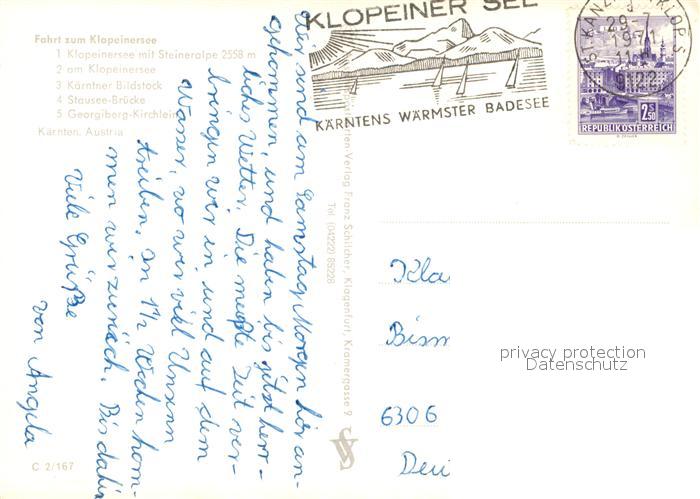 Fahrt zum Klopeinersee
1 Klopeinersee mit Steineralpe 2558 m
2 am Klopeinersee
3 Kärntner Bildstock
4 Stausee-Brücke
5 Georgiberg-Kirchlein
Kärnten, Austria
Wir sind am Samstag Morgen hier an-
gekommen, und haben bis jetzt herr-
liches Wetter. Die meiste Zeit ver-
bringen wir in und auf dem
Wasser, wo wir viel Unsinn
treiben. In 1½ Wochen kom-
men wir zurück. Bis dahin
Viele Grüße
von Angela
C 2/167
Verlag Franz Schilcher, Klagenfurt, Kramergasse 9
Tel. (04222) 85228
KLOPEINER SEE
KÄRNTENS WÄRMSTER BADESEE
29. 7
1971
9122
2S50
REPUBLIK ÖSTERREICH
Kla
Bism
6306
privacy protection
Datenschutz